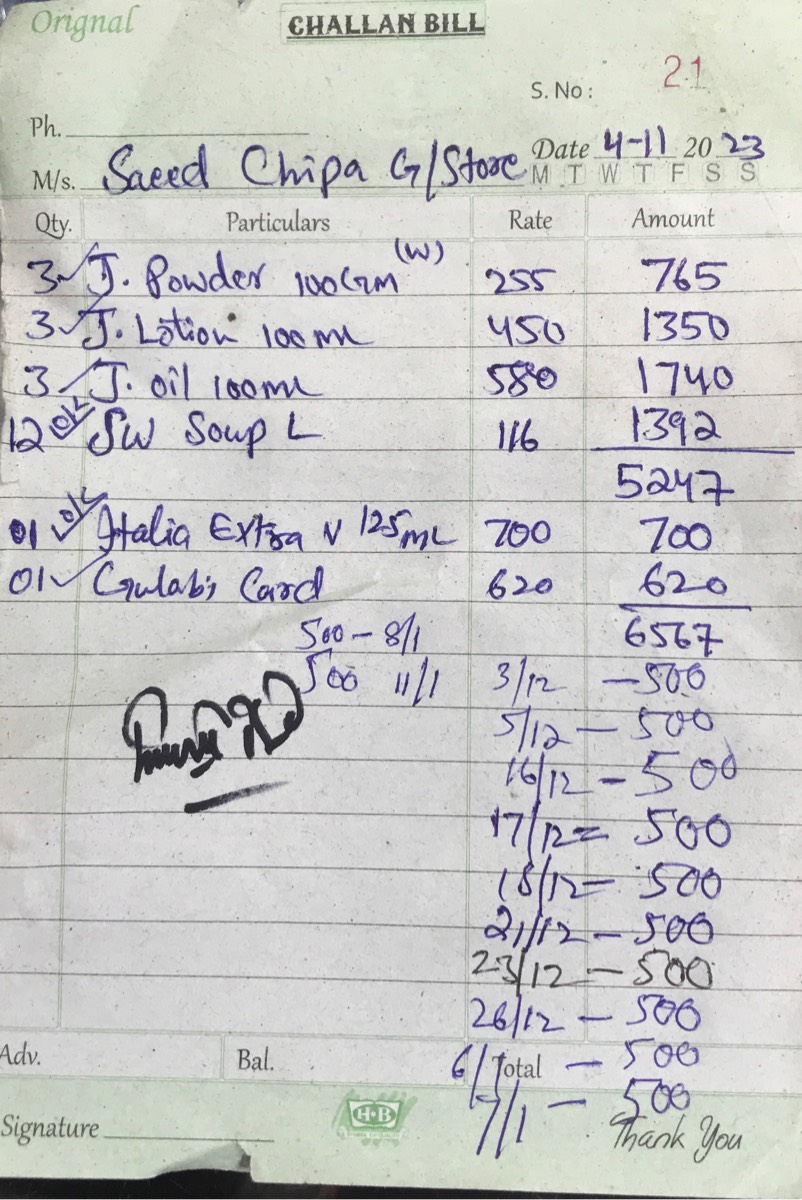 Orignal
CHALLAN BILL
S. No : 21
Ph.
Date 4-11 2023
M/s. Saeed Chipa G/Store
M T W T F S S
Qty. Particulars Rate Amount
3 J. Powder 100Gm (W) 255 765
3 J. Lotion 100ml 450 1350
3 J. oil 100ml 580 1740
12 ok SW Soup L 116 1392
5247
01 ok Italia Extra V 125ml 700 700
01 Gulabi Card 620 620
500 - 8/1 6567
500 11/1 3/12 - 500
5/12 - 500
16/12 - 500
17/12 = 500
18/12 - 500
21/12 - 500
23/12 - 500
26/12 - 500
Adv. Bal. 6/ Total - 500
7/1 - 500
Signature H·B Thank You